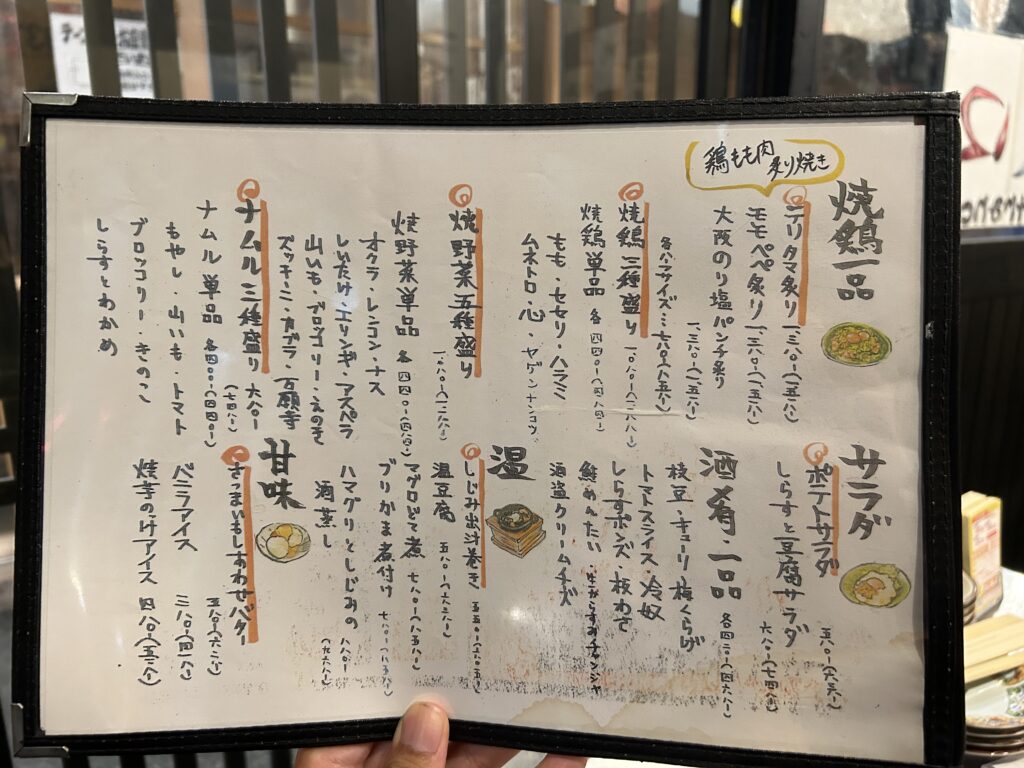 鶏もも肉
炙り焼き
焼鶏一品
テリタマ炙り 一三八〇(一五一八)
モモペペ炙り 一三八〇(一五一八)
大阪のり塩パンチ炙り
一三八〇(一五一八)
各ハーフサイズ…七八〇(八五八)
焼鶏三種盛り 一〇八〇(一一八八)
焼鶏単品 各四四〇(四八四)
もも・セセリ・ハラミ
ムネトロ・心・ヤゲンナンコツ
焼野菜五種盛り
一〇八〇(一一八八)
焼野菜単品 各四四〇(四八四)
オクラ・レンコン・ナス
しいたけ・エリンギ・アスパラ
山いも・ブロッコリー・えのき
ズッキーニ・カブラ・万願寺
ナムル三種盛り 六八〇
(七四八)
ナムル単品 各四〇〇(四四〇)
もやし・山いも・トマト
ブロッコリー・きのこ
しらすとわかめ
サラダ
ポテトサラダ
五八〇(六三八)
しらすと豆腐サラダ
六八〇(七四八)
酒肴・一品
各四二〇(四六二)
枝豆・キューリ・梅くらげ
トマトスライス・冷奴
しらすポンズ・板わさ
鮭めんたい・生からすみチャンジャ
酒盗クリームチーズ
温
しじみ出汁巻き 九五〇(一〇四五)
温豆腐 五八〇(六三八)
マグロどて煮 七八〇(八五八)
ブリかま煮付け 七八〇(八五八)
ハマグリとしじみの
酒蒸し 八八〇
(九六八)
甘味
さつまいもしあわせバター
五八〇(六三八)
バニラアイス 三八〇(四一八)
焼芋のっけアイス 四八〇(五二八)